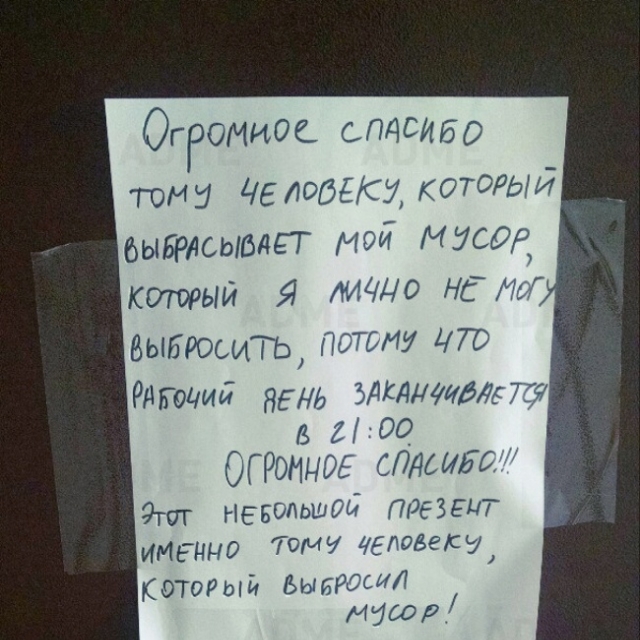 Огромное спасибо
тому человеку, который
выбрасывает мой мусор,
который я лично не могу
выбросить, потому что
рабочий день заканчивается
в 21:00
Огромное спасибо!!!
Этот небольшой презент
именно тому человеку,
который выбросил
мусор!